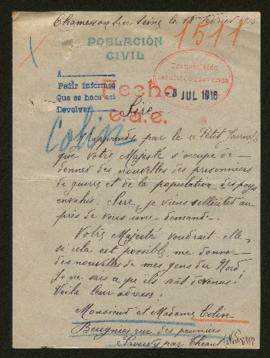 Champigny sur Seine le 18
1511
POBLACIÓN
CIVIL
A
Pedir informes
Que se haca así
Devolver
Fecho
-8 JUL 1916
e.d.e.
Colin
Sire,
J'apprends par le "Petit Journal"
que Votre Majesté s'occupe de
donner des nouvelles des prisonniers
de guerre et de la population des pays
envahis. Sire, je viens solliciter au-
près de vous une demande.
Votre Majesté voudrait-elle
si cela est possible, me donner
des nouvelles de mes gens du Nord,
Je ne sais ce qu'ils sont devenus!
Voilà leur adresse:
Monsieur et Madame Colin
Beugnies rue des
par